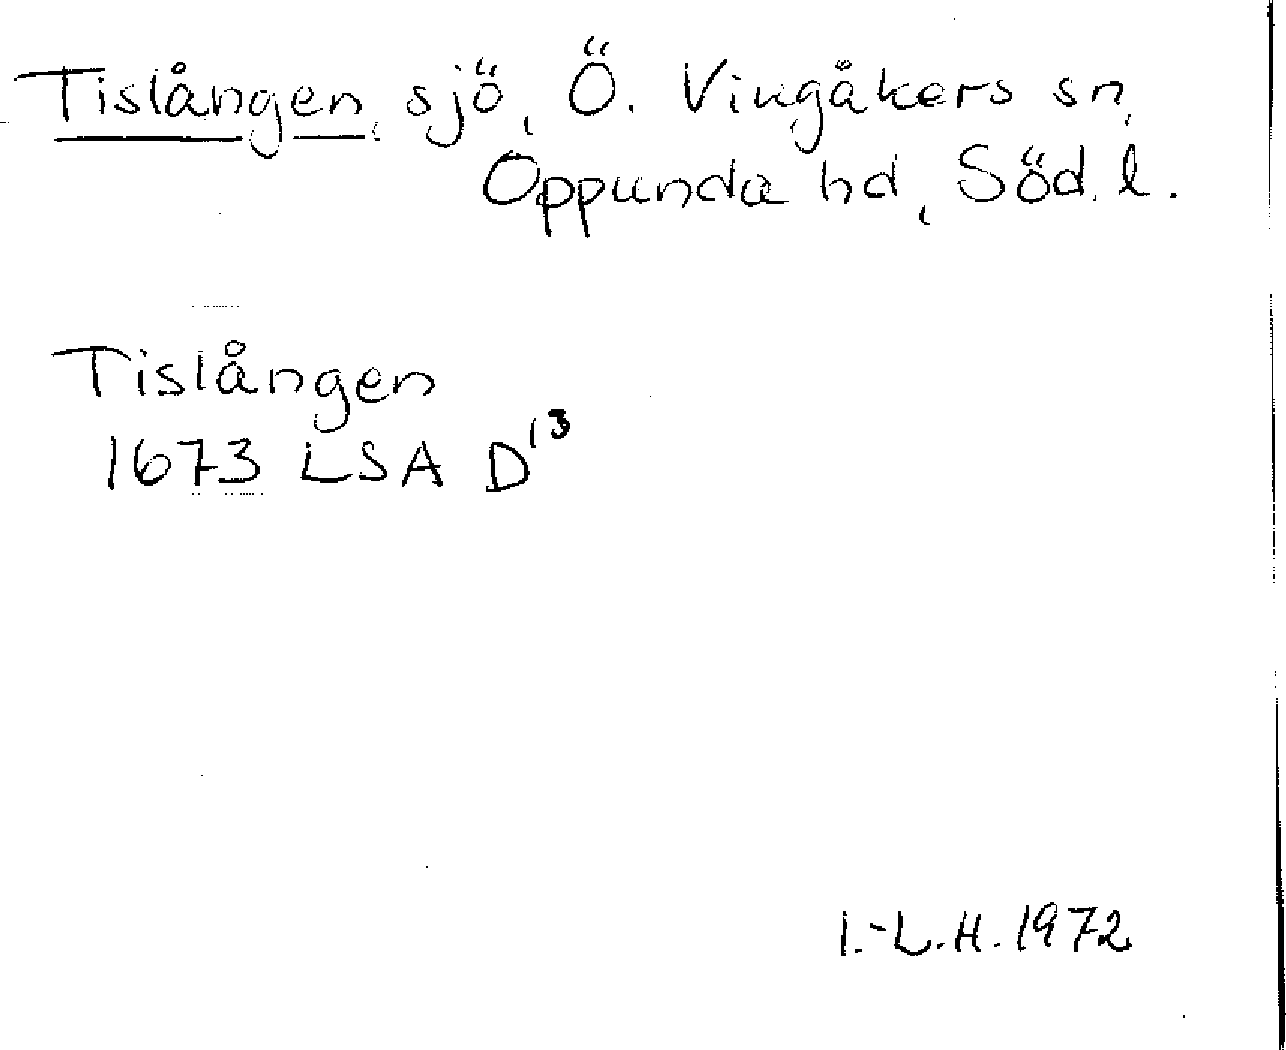 Tislången, sjö, Ö. Vingåkers sn,
Oppunda hd, Söd. l.
Tislången
1673 LSA D¹³
I.-L.H. 1972